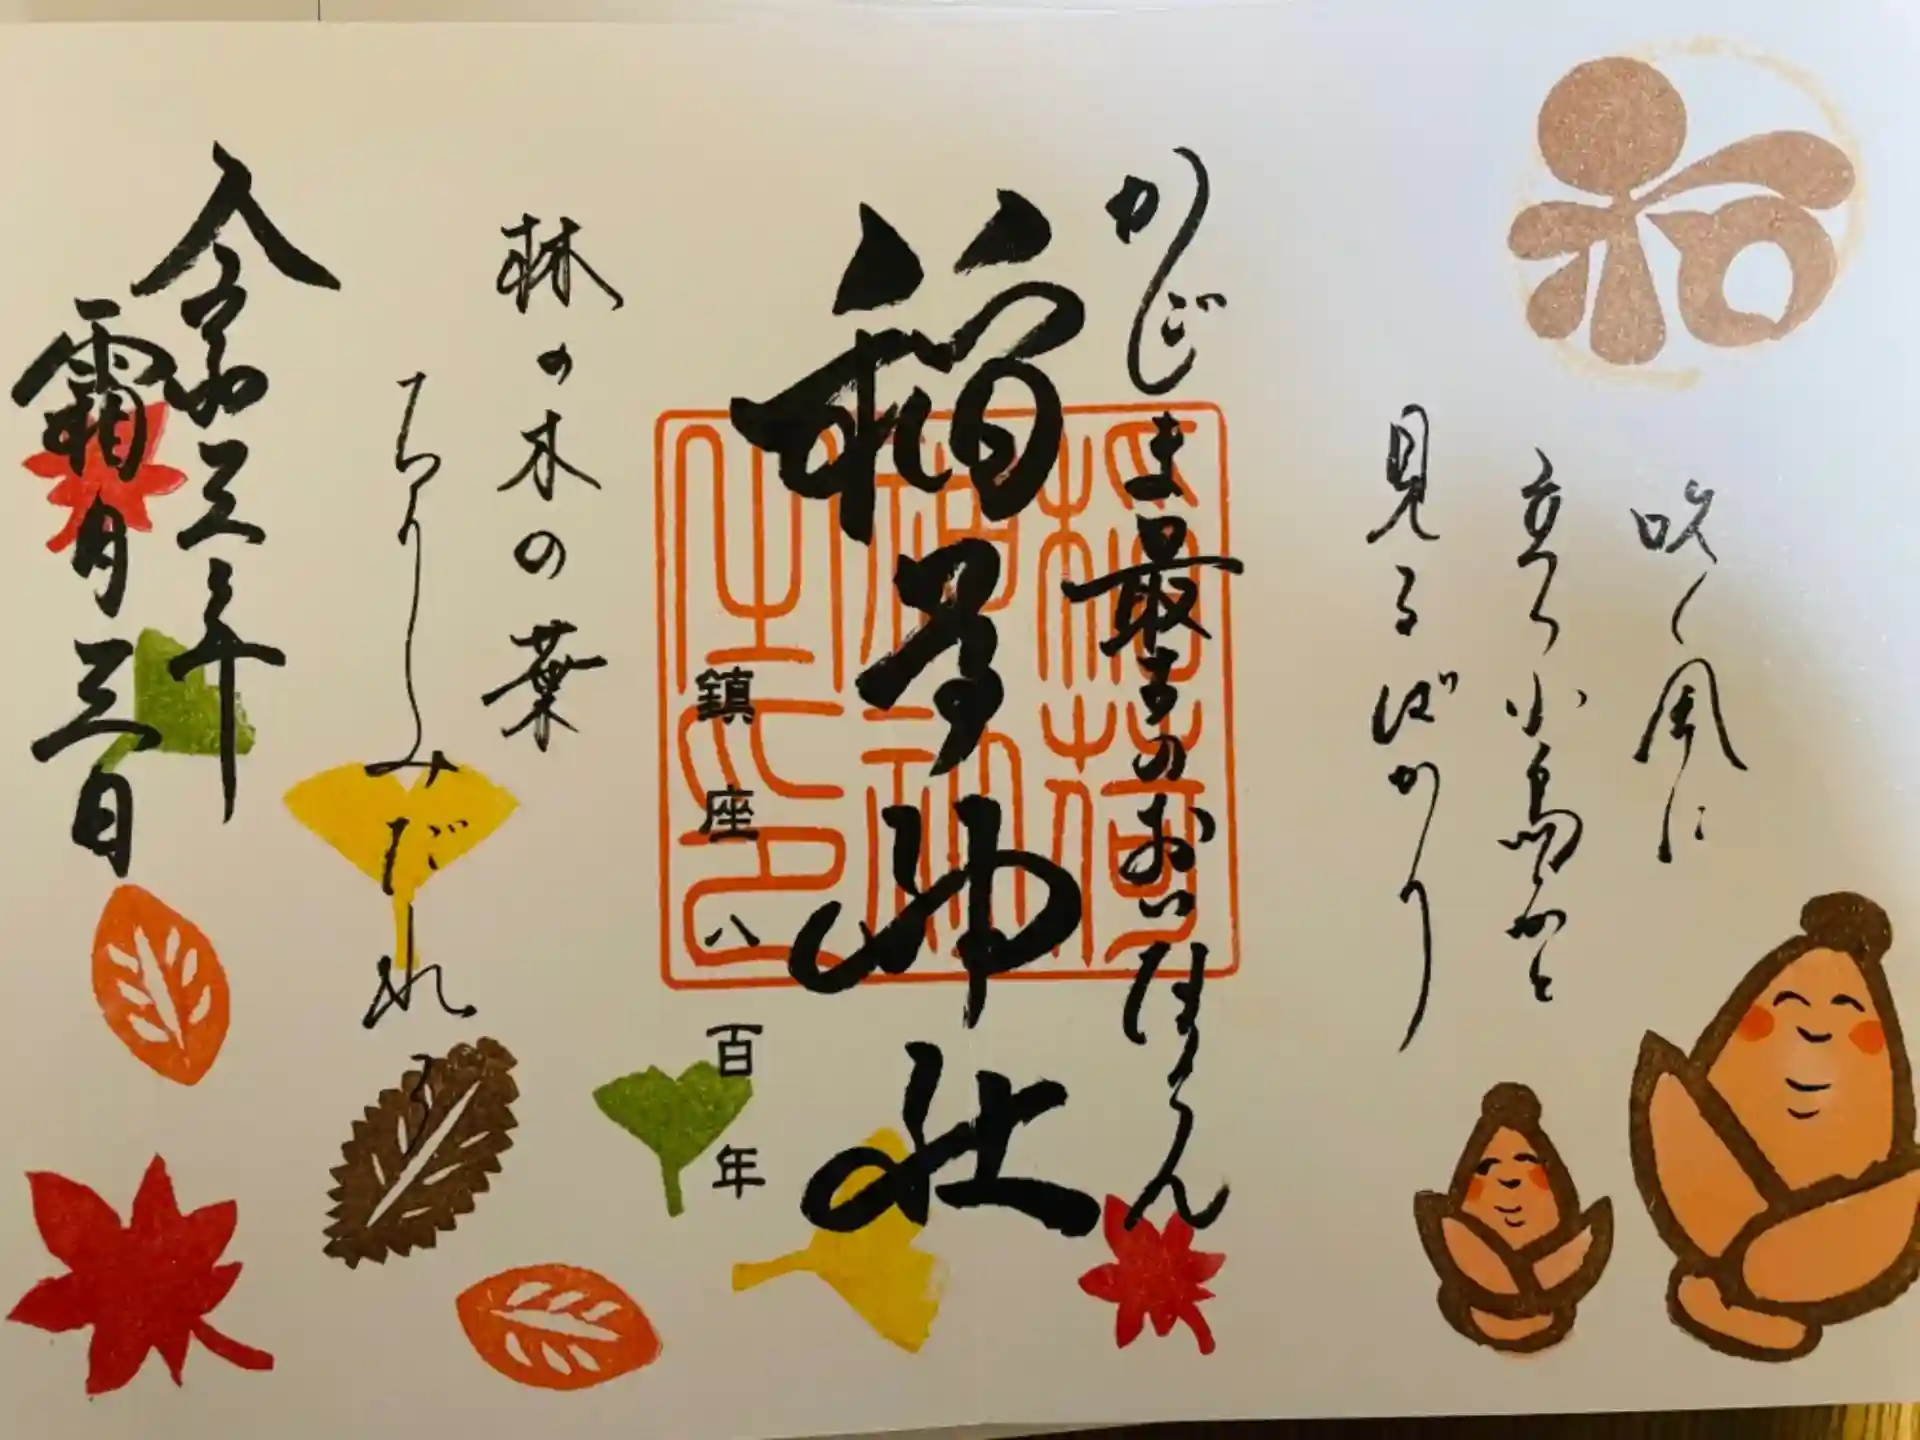 和
吹く風に
立つ小鳥かと
見るばかり
かごしま最古のおいなりさん
稲荷神社
鎮座八百年
林の木の葉
ちりしみだれる
令和三年
霜月三日